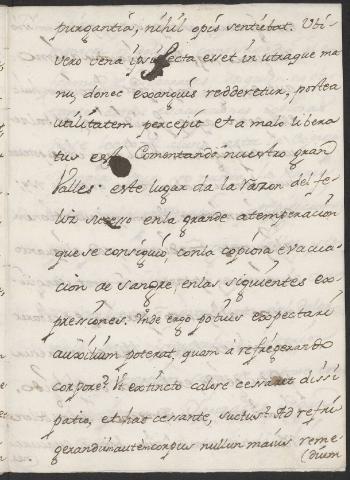 purgantia, nihil opis sentiebat. Ubi
vero vena ipsi secta esset in utraque ma
nu, donec exanguis redderetur, postea
utilitatem percepit et a malo libera
tus est. Comentando nuestro gran
Valles este lugar da la razon del fe
liz suceso en la grande atemperacion
que se consiguió con la copiosa evacua
cion de sangre, en las siguientes ex
pressiones. Unde ergo potuis expectari
auxilium poterat, quam á refrigerando
corpore? Ut extincto calore cessaret dissi
patio, et hac cessante, suctus? Ad refri
gerandum autem corpus nullum maius reme
(dium